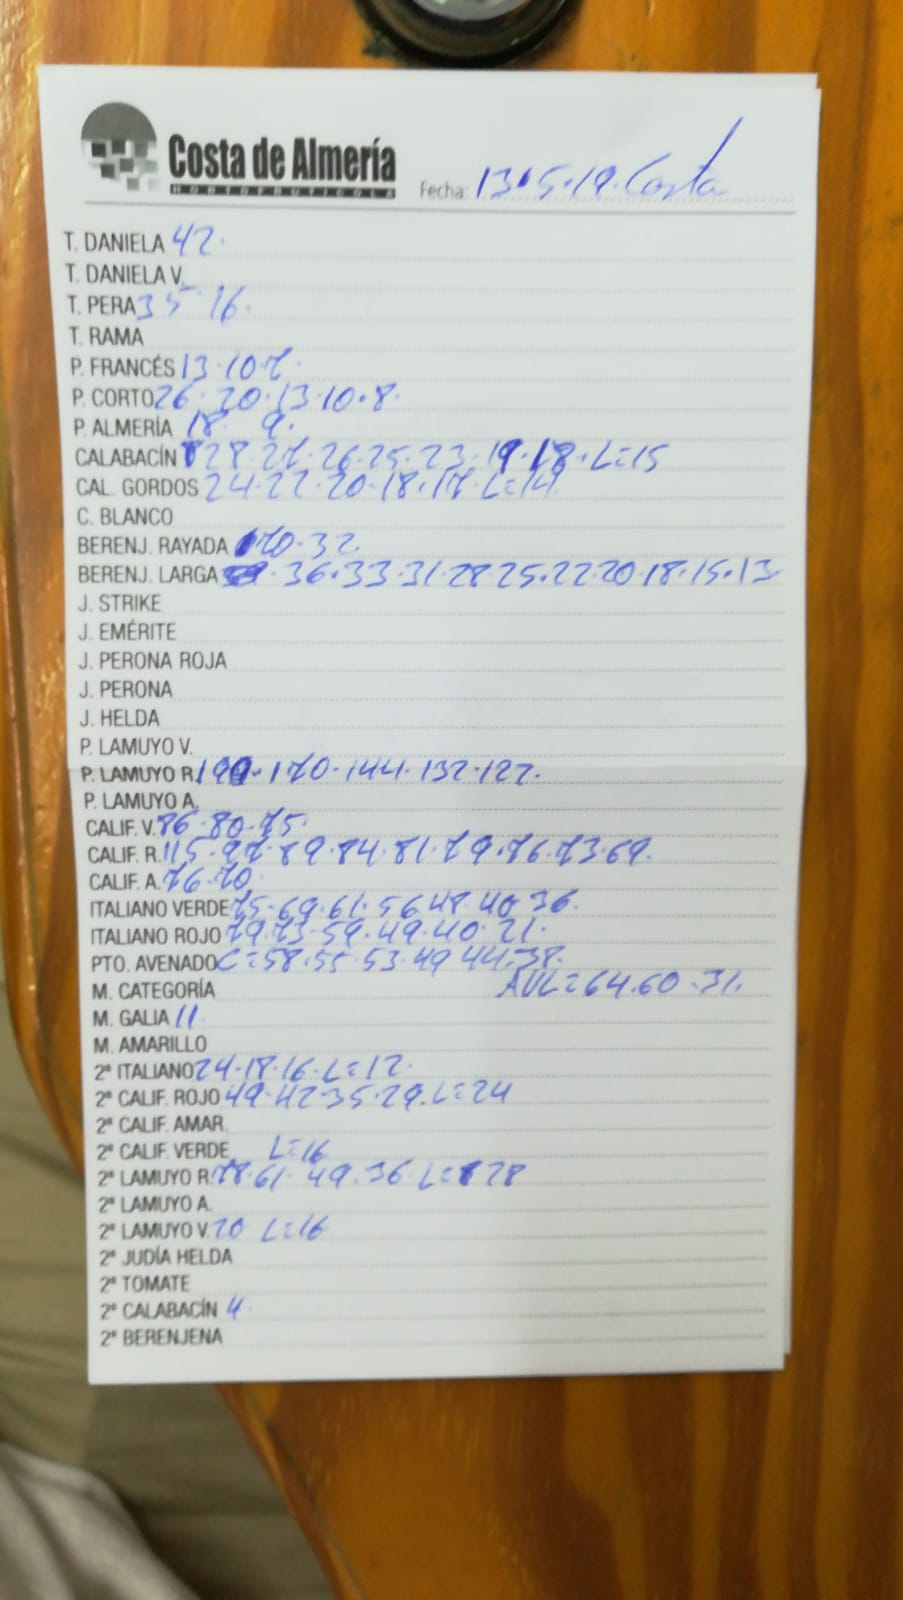 Costa de Almería
HORTOFRUTICOLA
Fecha: 13.5.19. Costa
T. DANIELA 42.
T. DANIELA V.
T. PERA 35 16.
T. RAMA
P. FRANCÉS 13.10.7.
P. CORTO 26.20.13.10.8.
P. ALMERÍA 18 9.
CALABACÍN 28.27.26.25.23.19.18.L=15
CAL. GORDOS 24.22.20.18.17.L=14
C. BLANCO
BERENJ. RAYADA 70.32.
BERENJ. LARGA 36.33.31.28 25.22.20.18.15.13.
J. STRIKE
J. EMÉRITE
J. PERONA ROJA
J. PERONA
J. HELDA
P. LAMUYO V.
P. LAMUYO R. 170.144.132.127.
P. LAMUYO A.
CALIF. V. 86.80.75.
CALIF. R. 115.97.89.84.81.79.76.73.69.
CALIF. A. 76.70.
ITALIANO VERDE 75.69.61.56 48.40.36.
ITALIANO ROJO 79.73.59.49.40.21.
PTO. AVENADO C=58.55.53.49 44.38.
M. CATEGORÍA AVL=64.60.31.
M. GALIA 11.
M. AMARILLO
2ª ITALIANO 24.18.16.L=12.
2ª CALIF. ROJO 49.42 35.29.L=24
2ª CALIF. AMAR.
2ª CALIF. VERDE L=16
2ª LAMUYO R. 78.61.49.36.L=28
2ª LAMUYO A.
2ª LAMUYO V. 20 L=16
2ª JUDÍA HELDA
2ª TOMATE
2ª CALABACÍN 4.
2ª BERENJENA